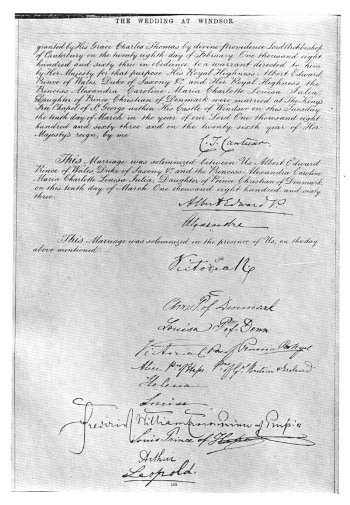 THE WEDDING AT WINDSOR.
granted by His Grace Charles Thomas by divine Providence Lord Archbishop
of Canterbury on the twenty eighth day of February One thousand eight
hundred and sixty three in obedience to a warrant directed to him
by Her Majesty for that purpose His Royal Highness Albert Edward
Prince of Wales, Duke of Saxony &c and Her Royal Highness the
Princess Alexandra Caroline Maria Charlotte Louisa Julia,
Daughter of Prince Christian of Denmark were married at The King's
Free Chapel of St George within His Castle of Windsor on this Tuesday
the tenth day of March in the year of our Lord One thousand eight
hundred and sixty three and in the twenty sixth year of Her
Majesty's reign, by me
C. T. Cantuar
This Marriage was solemnized between Us Albert Edward
Prince of Wales, Duke of Saxony &c and the Princess Alexandra Caroline
Maria Charlotte Louisa Julia, Daughter of Prince Christian of Denmark
on this tenth day of March One thousand eight hundred and sixty
three.
Albert Edward P
Alexandra
This Marriage was solemnized in the presence of Us, on the day
above mentioned
Victoria R
of Denmark
Louise
Victoria
Alice
Helena
Louise
Frederick William
Louis Prince of
Arthur
Leopold.